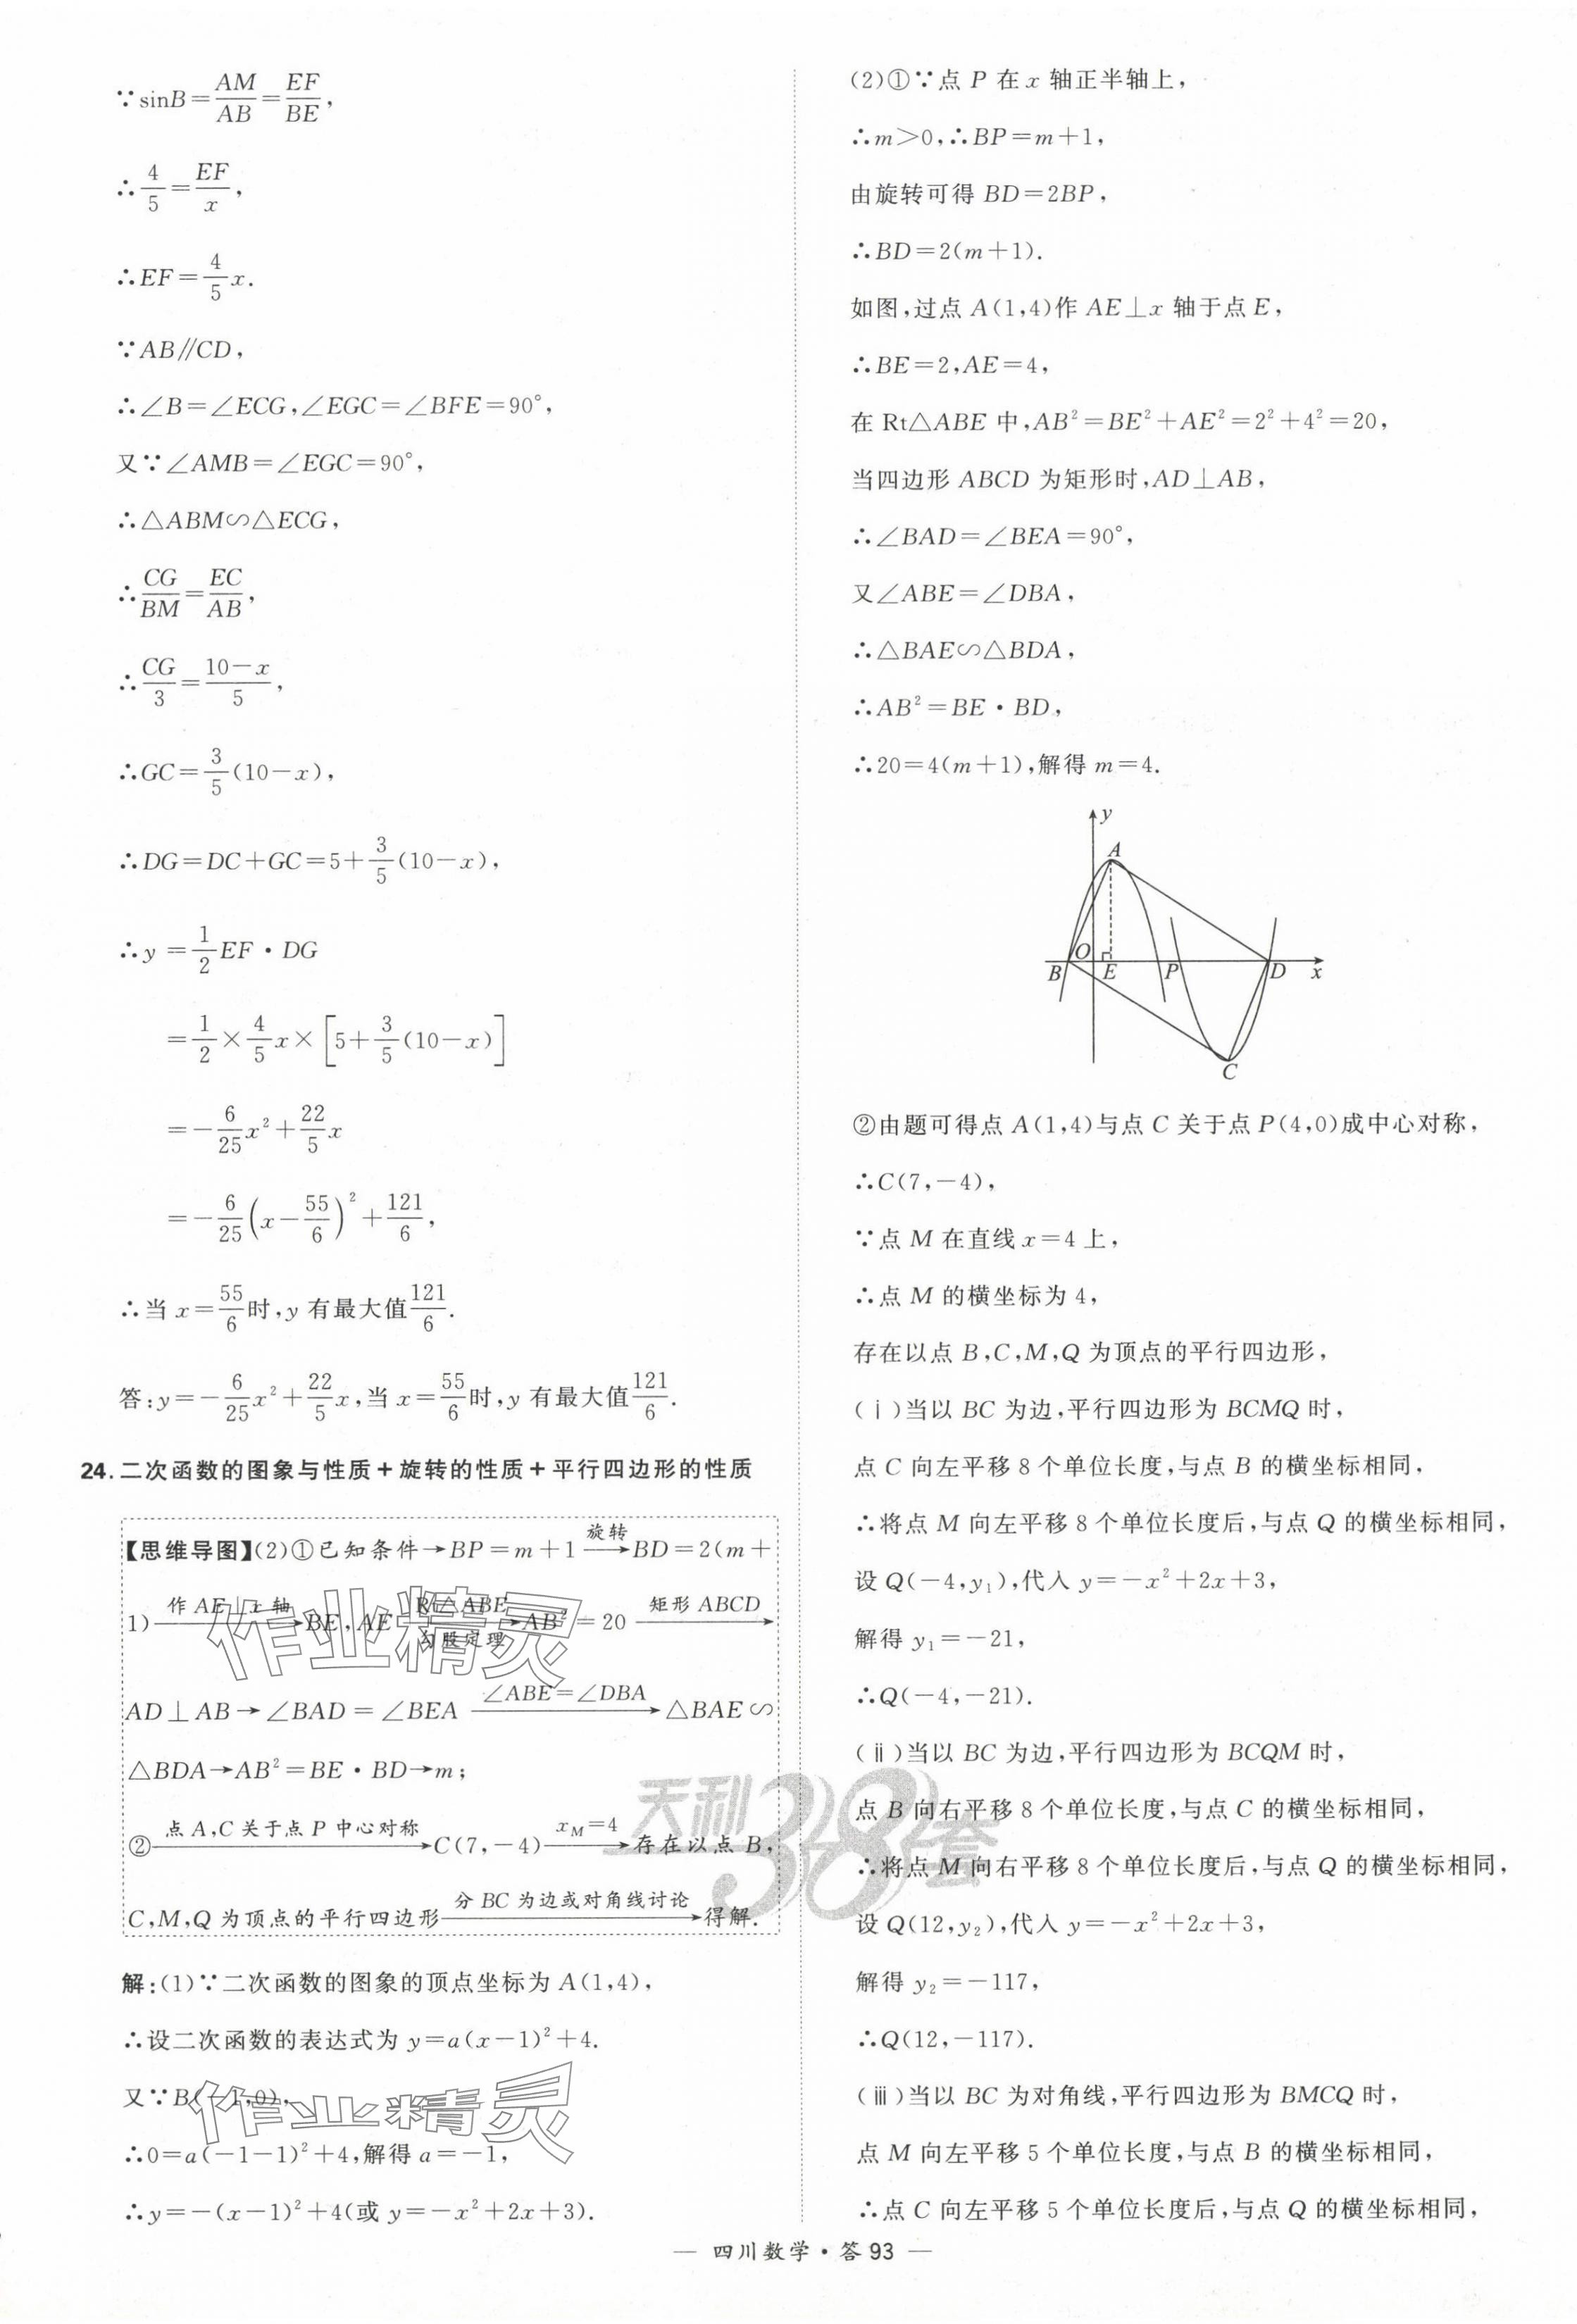 ∵sinB=AM/AB=EF/BE,
∴4/5=EF/x,
∴EF=4/5x.
∵AB∥CD,
∴∠B=∠ECG,∠EGC=∠BFE=90°,
又∵∠AMB=∠EGC=90°,
∴△ABM∽△ECG,
∴CG/BM=EC/AB,
∴CG/3=(10-x)/5,
∴GC=3/5(10-x),
∴DG=DC+GC=5+3/5(10-x),
∴y=1/2EF·DG
=1/2×4/5x×[5+3/5(10-x)]
=-6/25x²+22/5x
=-6/25(x-55/6)²+121/6,
∴当x=55/6时,y有最大值121/6.
答:y=-6/25x²+22/5x,当x=55/6时,y有最大值121/6.
24.二次函数的图象与性质+旋转的性质+平行四边形的性质
【思维导图】(2)①已知条件→BP=m+1 旋转→BD=2(m+
1) 作AE⊥x轴→BE,AE Rt△ABE 勾股定理→AB²=20 矩形ABCD→
AD⊥AB→∠BAD=∠BEA ∠ABE=∠DBA→△BAE∽
△BDA→AB²=BE·BD→m;
② 点A,C关于点P中心对称→C(7,-4) x_M=4→存在以点B,
C,M,Q为顶点的平行四边形 分BC为边或对角线讨论→得解.
解:(1)∵二次函数的图象的顶点坐标为A(1,4),
∴设二次函数的表达式为y=a(x-1)²+4.
又∵B(-1,0),
∴0=a(-1-1)²+4,解得a=-1,
∴y=-(x-1)²+4(或y=-x²+2x+3).
(2)①∵点P在x轴正半轴上,
∴m>0,∴BP=m+1,
由旋转可得BD=2BP,
∴BD=2(m+1).
如图,过点A(1,4)作AE⊥x轴于点E,
∴BE=2,AE=4,
在Rt△ABE中,AB²=BE²+AE²=2²+4²=20,
当四边形ABCD为矩形时,AD⊥AB,
∴∠BAD=∠BEA=90°,
又∠ABE=∠DBA,
∴△BAE∽△BDA,
∴AB²=BE·BD,
∴20=4(m+1),解得m=4.
y
A
B O E P D x
C
②由题可得点A(1,4)与点C关于点P(4,0)成中心对称,
∴C(7,-4),
∵点M在直线x=4上,
∴点M的横坐标为4,
存在以点B,C,M,Q为顶点的平行四边形,
(ⅰ)当以BC为边,平行四边形为BCMQ时,
点C向左平移8个单位长度,与点B的横坐标相同,
∴将点M向左平移8个单位长度后,与点Q的横坐标相同,
设Q(-4,y₁),代入y=-x²+2x+3,
解得y₁=-21,
∴Q(-4,-21).
(ⅱ)当以BC为边,平行四边形为BCQM时,
点B向右平移8个单位长度,与点C的横坐标相同,
∴将点M向右平移8个单位长度后,与点Q的横坐标相同,
设Q(12,y₂),代入y=-x²+2x+3,
解得y₂=-117,
∴Q(12,-117).
(ⅲ)当以BC为对角线,平行四边形为BMCQ时,
点M向左平移5个单位长度,与点B的横坐标相同,
∴点C向左平移5个单位长度后,与点Q的横坐标相同,
作业精灵
天利38套
作业精灵
— 四川数学·答93 —